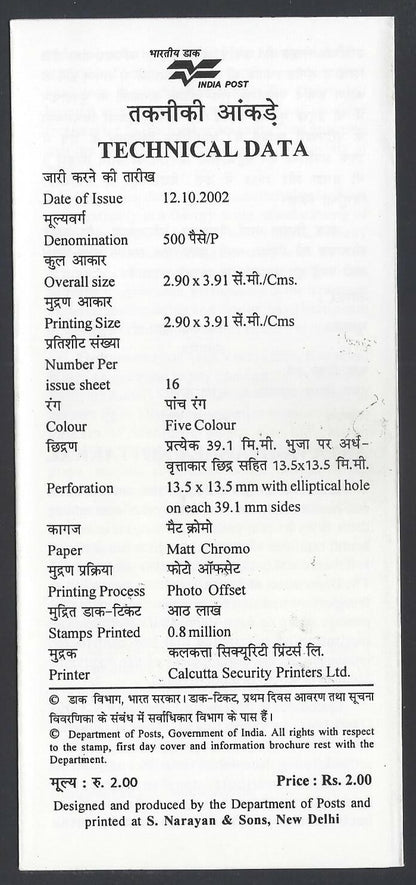 भारतीय डाक
INDIA POST
तकनीकी आंकड़े
TECHNICAL DATA
जारी करने की तारीख
Date of Issue 12.10.2002
मूल्यवर्ग
Denomination 500 पैसे/P
कुल आकार
Overall size 2.90 x 3.91 सें.मी./Cms.
मुद्रण आकार
Printing Size 2.90 x 3.91 सें.मी./Cms
प्रतिशीट संख्या
Number Per
issue sheet 16
रंग पांच रंग
Colour Five Colour
छिद्रण प्रत्येक 39.1 मि.मी. भुजा पर अर्ध-
वृत्ताकार छिद्र सहित 13.5x13.5 मि.मी.
Perforation 13.5 x 13.5 mm with elliptical hole
on each 39.1 mm sides
कागज मैट क्रोमो
Paper Matt Chromo
मुद्रण प्रक्रिया फोटो ऑफसेट
Printing Process Photo Offset
मुद्रित डाक-टिकट आठ लाख
Stamps Printed 0.8 million
मुद्रक कलकत्ता सिक्यूरिटी प्रिंटर्स लि.
Printer Calcutta Security Printers Ltd.
© डाक विभाग, भारत सरकार। डाक-टिकट, प्रथम दिवस आवरण तथा सूचना
विवरणिका के संबंध में सर्वाधिकार विभाग के पास हैं।
© Department of Posts, Government of India. All rights with respect
to the stamp, first day cover and information brochure rest with the
Department.
मूल्य : रु. 2.00 Price : Rs. 2.00
Designed and produced by the Department of Posts and
printed at S. Narayan & Sons, New Delhi